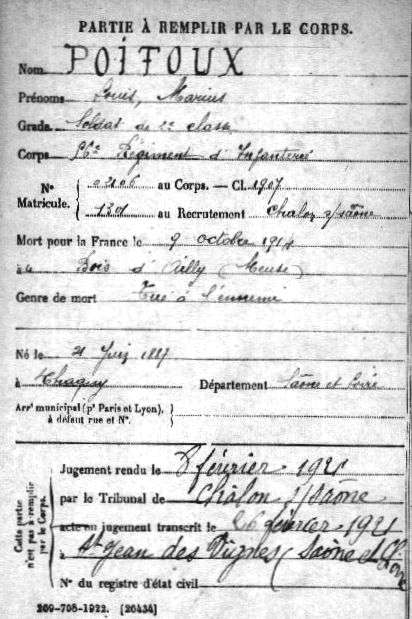 PARTIE À REMPLIR PAR LE CORPS.
Nom POITOUX
Prénoms Louis, Marius
Grade Soldat de 2e classe
Corps 56e Régiment d'Infanterie
N° Matricule. au Corps. — Cl. 1907
au Recrutement Chalon s/Saône
Mort pour la France le 9 octobre 1914
à Bois d'Ailly (Meuse)
Genre de mort Tué à l'ennemi
Né le Juin 1887
à Chagny Département Saône et Loire
Arrt municipal (pr Paris et Lyon),
à défaut rue et N°.
Cette partie
n'est pas à remplir
par le Corps.
Jugement rendu le 8 février 1921
par le Tribunal de Châlon s/Saône
acte ou jugement transcrit le 26 février 1921
à St Jean des Vignes (Saône et Loire
N° du registre d'état civil
209-708-1922. [26434]